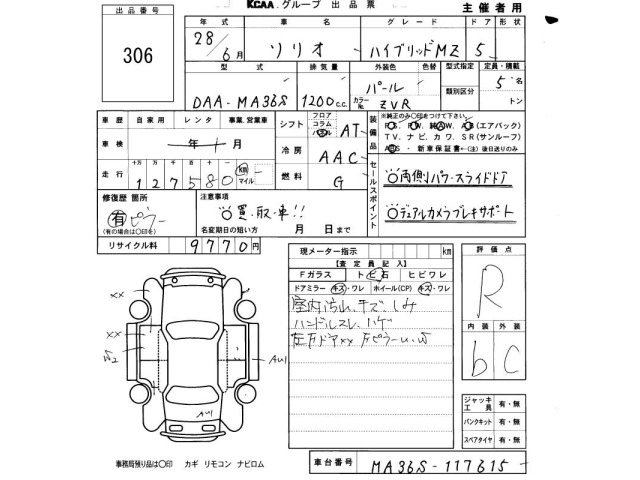 出品番号
306
KCAA.グループ 出品票
主催者用
年式 車名 グレード ドア 形状
28/6月 ソリオ ハイブリッドMZ 5
型式 排気量 外装色 色替 型式指定 定員・積載
類別区分
DAA-MA36S 1200c.c. パール カラーNo. ZVR 5名
トン
車歴 自家用 レンタ 事業.営業車
車検 年 月
走行 十万 万 千 百 十 一
127580 km マイル
シフト フロア コラム パネル AT
冷房 AAC
燃料 G
装備品
※純正のみ○印をつけて下さい。
P.S. P.W. 純A.W. A.B(エアバック)
T.V. ナビ. カワ. S R(サンルーフ)
ABS・新車保証書←(注)後日送りのみ
セールスポイント
◎両側パワースライドドア
◎デュアルカメラブレーキサポート
修復歴 箇所
有 ピラー
(有の場合は○印を)
注意事項
◎買取車!!
名変期日の短い方 月 日まで
リサイクル料 9770円
現メーター指示 km
【査定員記入】
Fガラス トビ石 ヒビワレ
ドアミラー キズ・ワレ ホイール(CP) キズ・ワレ
室内汚れ、キズ、しみ
ハンドルスレ、ハゲ
評価点
R
内装 外装
b C
XX
XX
AU1
AU1
ジャッキ工具 有・無
パンクキット 有・無
スペアタイヤ 有・無
事務局残り品は○印 カギ リモコン ナビロム
車台番号 MA36S-117615